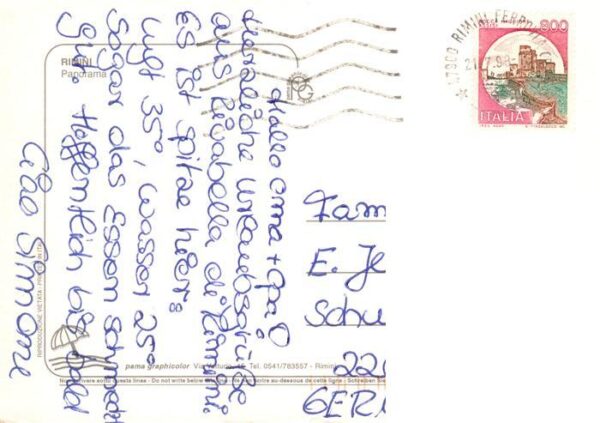 RIMINI
Panorama
Hallo Oma + Opa!
Herzliche Urlaubsgrüße
aus Rivabella di Rimini.
Es ist spitze hier:
Luft 35°, Wasser 25°
Sogar das Essen schmeckt
gut. Hoffentlich bis bald
Ciao Simone
Fam
E. Je
Schu
226
GER
800
ITALIA
47900 RIMINI FERROVIA
RIPRODUZIONE VIETATA - PRINTED IN ITALY
pama graphicolor Tel. 0541/783557 - Rimini
Non scrivere sotto questa linea - Do not write below au-dessous de cette ligne - Schreiben Sie